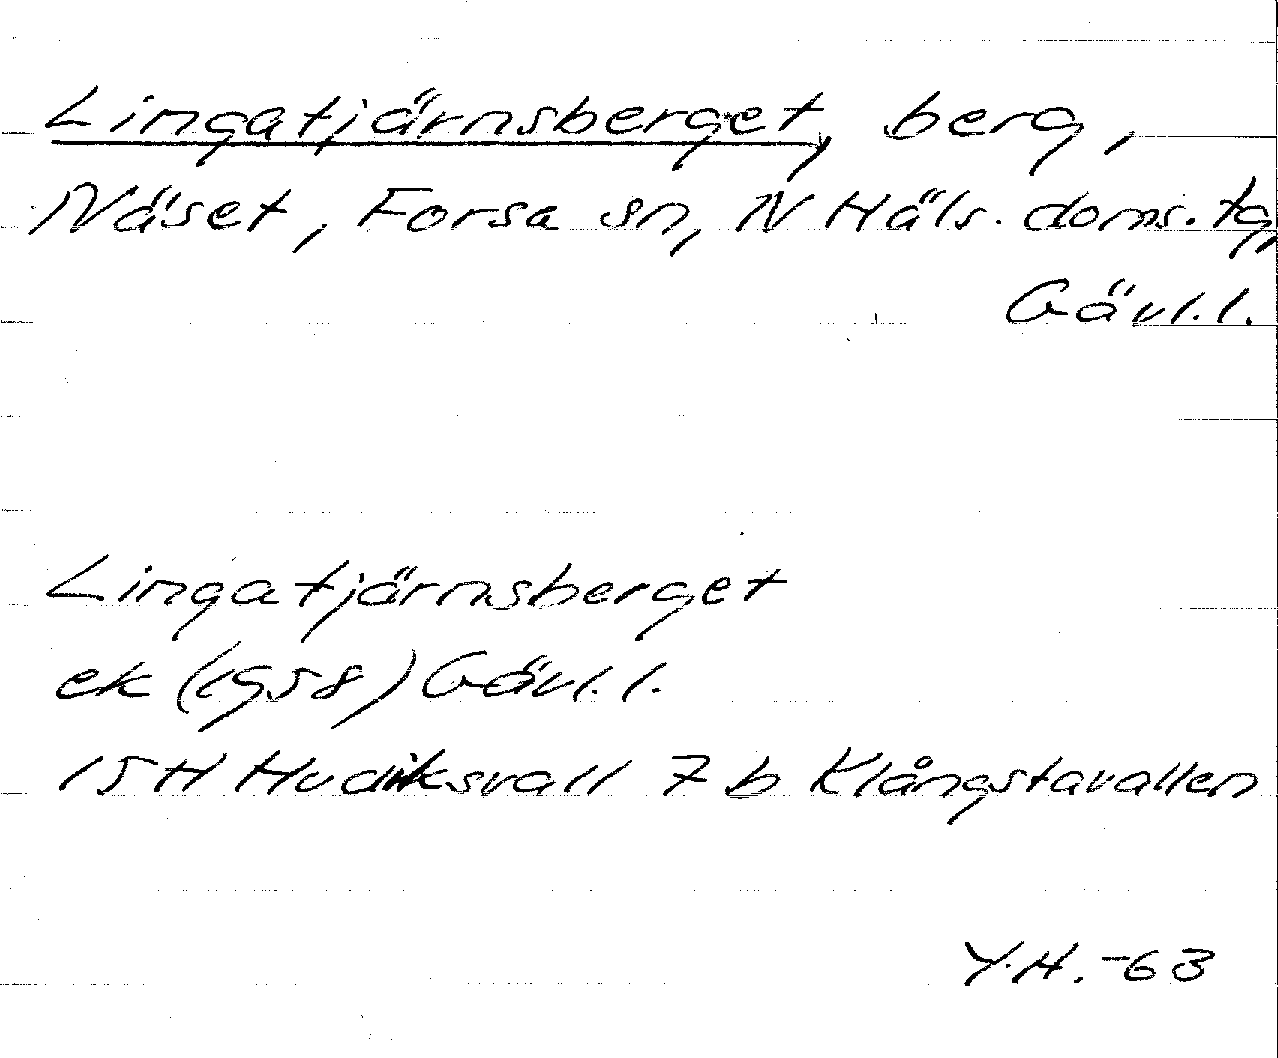 Lingatjärnsberget, berg,
Näset, Forsa sn, N Häls. doms. tg,
Gävl. l.
Lingatjärnsberget
ek (1958) Gävl. l.
15 H Hudiksvall 7 b Klångstavallen
Y.H. -63